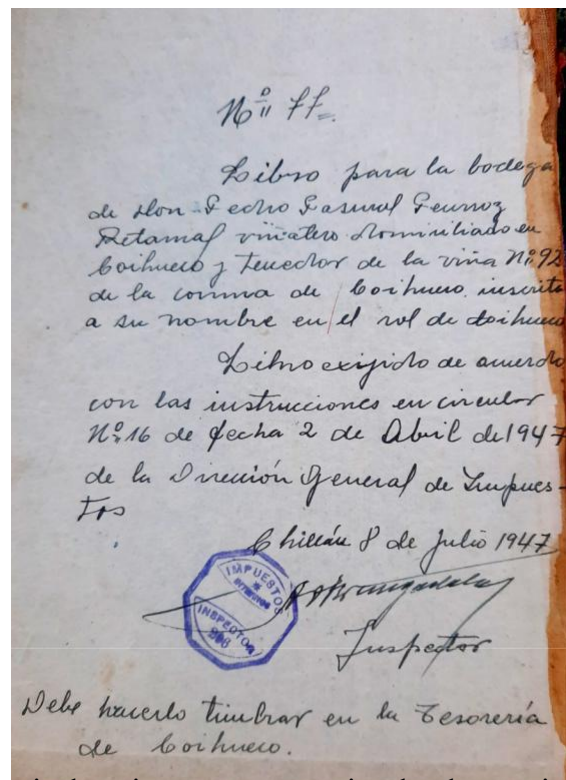 Nº 77
Libro para la bodega
de don Pedro Pascual
Retamal viñatero domiciliado en
Coihueco y tenedor de la viña Nº 92
de la comuna de Coihueco inscrita
a su nombre en el rol de Coihueco
Libro exijido de acuerdo
con las instrucciones en circular
Nº 16 de fecha 2 de Abril de 1947
de la Dirección General de Impues-
tos
Chillán 8 de Julio 1947
IMPUESTOS
INTERNOS
INSPECTOR
Inspector
Debe hacerlo timbrar en la Tesorería
de Coihueco.